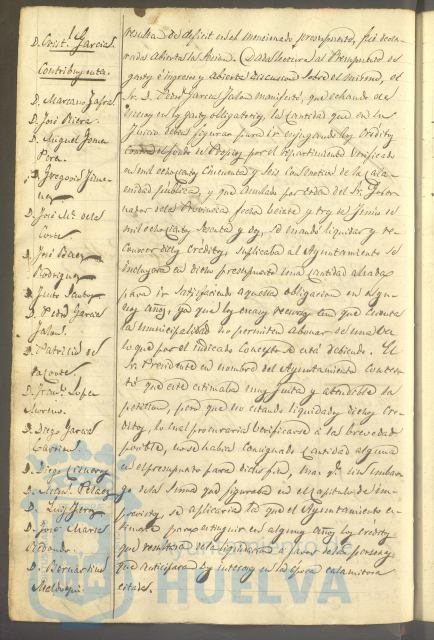 D. Crist.l Garcias.
Contribuyentes.
D. Mariano Jafral
D. José Riera
D. Miguel Gome
Pera.
D. Gregorio Jime
nez
D. José Mª. de la
Corte
D. José Baez
Rodriguez
D. Justo Santos
D. Pedro Garcia
Jalon.
D. Patricio de
la Corte
D. Fran.co Lopez
Moreno.
D. Diego Garcia
D. Diego Cisneros
D. Man.l Pelaez
D. Luis
D. José Maria
D. Bernardino
resulta de deficit en el mencionado presupuesto, fué decla-
rada abierta la sesion. Dada lectura al Presupuesto de
gastos é ingresos y abierta discusion sobre el mismo, el
Sr. D. Pedro Garcia Jalon manifestó, que echando de
menos en los gastos obligatorios, la cantidad que en su
juicio debia figurar para ir enjugando los creditos
contra el fondo de Propios por el repartimiento verificado
en mil ochocientos cincuenta y seis con motivo de la cala-
midad publica, y que anulado por orden del Sr. Gober
nador de la Provincia fecha veinte y tres de Junio de
mil ochocientos sesenta y dos, se mandó liquidar y re-
conocer dichos creditos, suplicaba al Ayuntamiento se
incluyera en dicho presupuesto una cantidad alzada
para ir satisfaciendo aquella obligacion en algu-
nos años, ya que los escasos recursos con que cuenta
la municipalidad no permiten abonar de una vez
lo que por el indicado concepto se está debiendo. El
Sr. Presidente en nombre del Ayuntamiento contes-
tó que este estimaba muy justa y atendible la
peticion, pero que no estando liquidados dichos cre-
ditos, lo cual procuraria verificarse á la brevedad
posible, no se habia consignado cantidad alguna
en el presupuesto para dicho fin, mas q.e sin embar-
go de la suma que figuraba en el capitulo de Im-
previstos, se aplicaria la que el Ayuntamiento es-
timase para extinguir en algunos años los creditos
que resultasen de la liquidacion á favor de las personas
que anticiparon los intereses en la época calamitosa
citada.
HUELVA